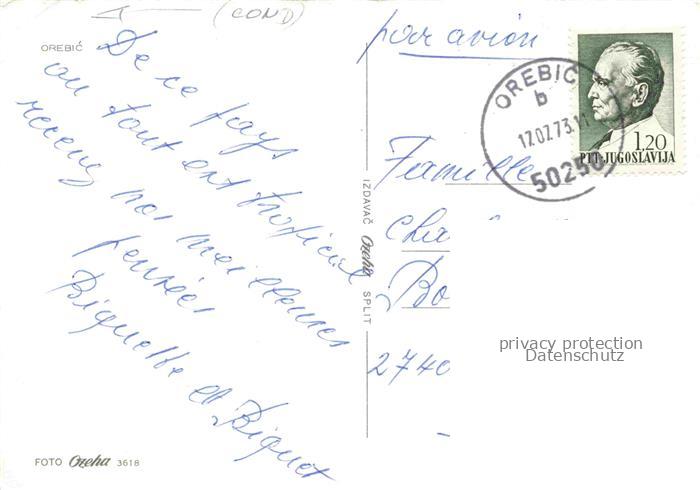 (COND)
par avion
OREBIĆ
De ce pays
ou tout est tropical
recevez nos meilleures
pensées
Biquette et Biquet
IZDAVAČ Oreha SPLIT
FOTO Oreha 3618
OREBIĆ
b
17.07.73.11
50250
1,20
PTT-JUGOSLAVIJA
Famille
Cha
Bo
2740
privacy protection
Datenschutz